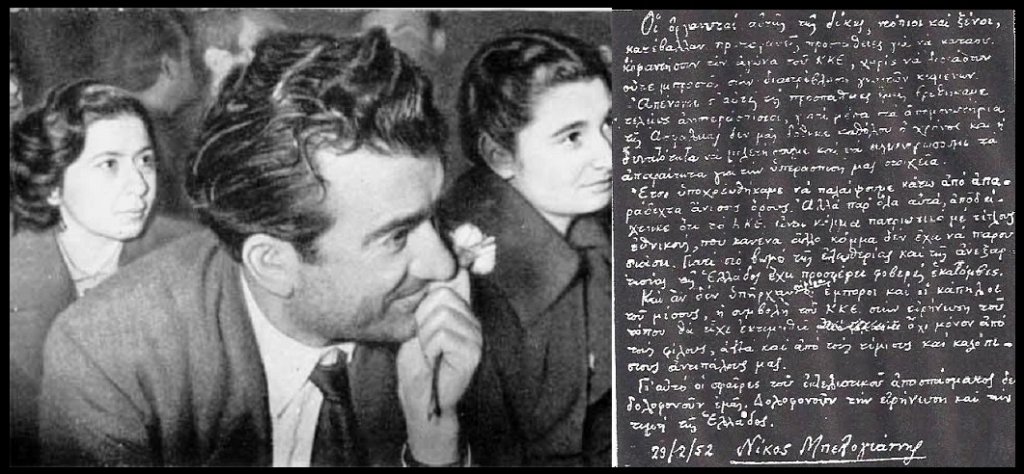 Οἱ ὀργανωταί αὐτῆς τῆς δίκης, ντόπιοι καί ξένοι,
κατέβαλλαν προσπάθειες γιά νά
τόν ἀγώνα τοῦ ΚΚΕ, χωρίς νά
οὔτε μπροστά στήν διαστρέβλωση γνωστῶν κειμένων.
Ἀπέναντι σ' αὐτές τίς προσπάθειες ἐμεῖς βρεθήκαμε
τελείως ἀνυπεράσπιστοι, γιατί μέσα στά ἀπομονωτήρια
τῆς Ἀσφάλειας δέν μᾶς δόθηκε καθόλου ὁ χρόνος καί ἡ
δυνατότητα νά μελετήσουμε καί νά τά
ἀπαραίτητα γιά τήν ὑπεράσπισή μας στοιχεῖα.
Ἔτσι ὑποχρεωθήκαμε νά παλαίψουμε κάτω ἀπό ἀπα-
ράδεχτα ἄνισους ὅρους. Ἀλλά παρ' ὅλα αὐτά, ἀποδεί-
χτηκε ὅτι τό ΚΚΕ εἶναι κόμμα πατριωτικό μέ τίτλους
ἐθνικούς, πού κανένα ἄλλο κόμμα δέν ἔχει νά παρου-
σιάσει. Γιατί στό βωμό τῆς ἐλευθερίας καί τῆς ἀνεξαρ-
τησίας τῆς Ἑλλάδος ἔχει προσφέρει φοβερές ἑκατόμβες.
Κι ἄν δέν ὑπῆρχαν οἱ ἔμποροι καί οἱ κάπηλοι
τοῦ μίσους, ἡ συμβολή τοῦ ΚΚΕ στήν εἰρήνευση τοῦ
τόπου θά εἶχε ἐκτιμηθεῖ ὄχι μόνον ἀπό
τούς φίλους, ἀλλά καί ἀπό τούς τίμιους καί καλόπι-
στους ἀντιπάλους μας.
Γι' αὐτό οἱ σφαῖρες τοῦ ἐκτελεστικοῦ ἀποσπάσματος δέ
δολοφονοῦν ἐμᾶς. Δολοφονοῦν τήν εἰρήνευση καί τήν
τιμή τῆς Ἑλλάδος.
29/2/52 Νίκος Μπελογιάννης